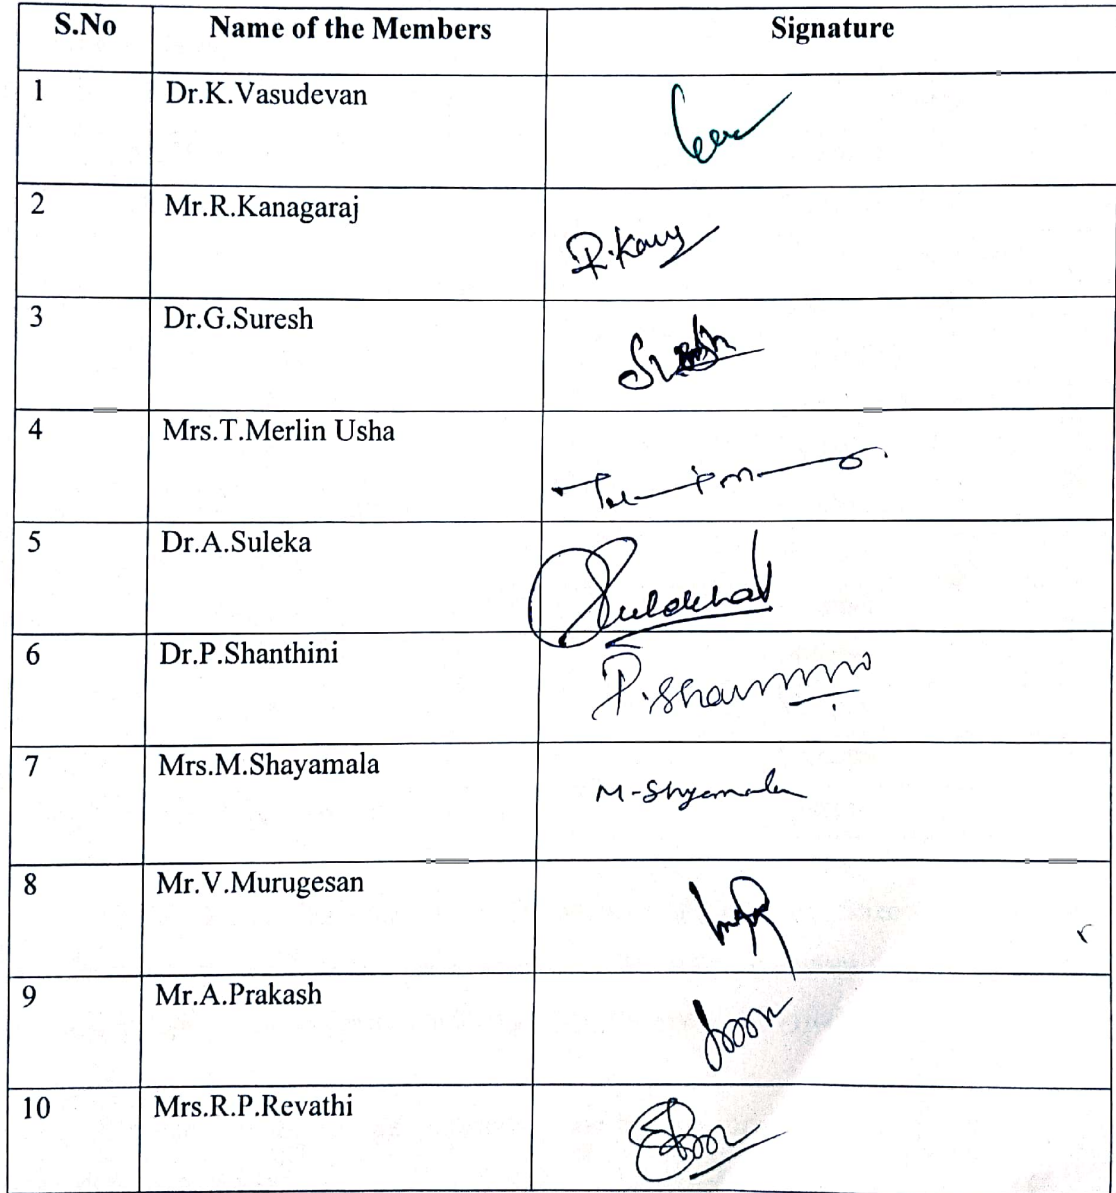 S.No Name of the Members Signature
1 Dr.K.Vasudevan
2 Mr.R.Kanagaraj
R.Kany
3 Dr.G.Suresh
Suresh
4 Mrs.T.Merlin Usha
5 Dr.A.Suleka
Sulekha
6 Dr.P.Shanthini
P.Shan
7 Mrs.M.Shayamala
M-Shyamala
8 Mr.V.Murugesan
9 Mr.A.Prakash
10 Mrs.R.P.Revathi